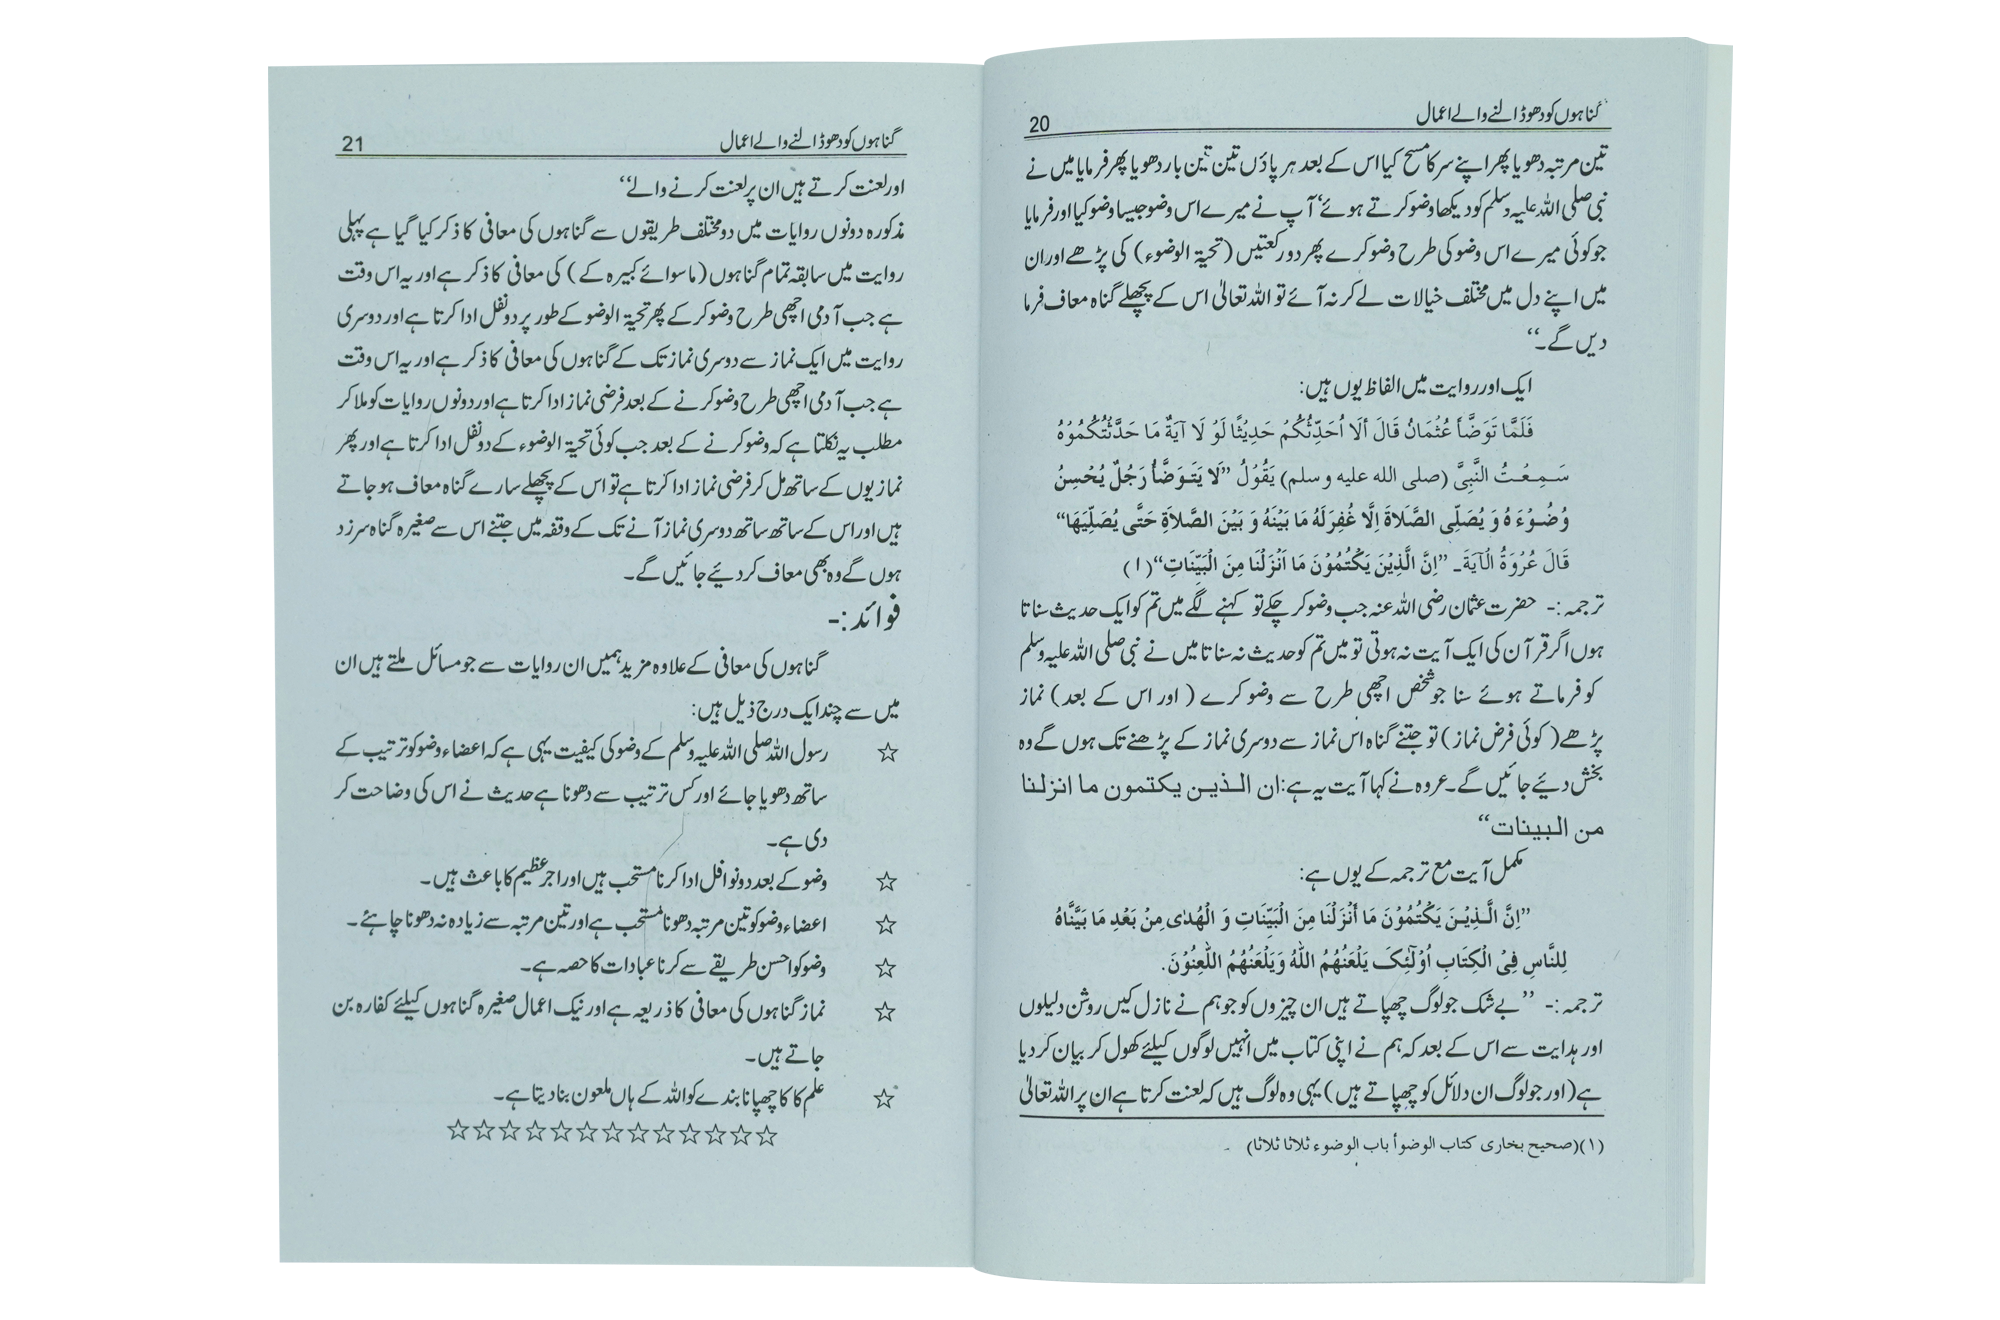 گناہوں کو دھو ڈالنے والے اعمال
20
تین مرتبہ دھویا پھر اپنے سر کا مسح کیا اس کے بعد ہر پاؤں تین تین بار دھویا پھر فرمایا میں نے
نبی صلی اللہ علیہ وسلم کو دیکھا وضو کرتے ہوئے‘ آپ نے میرے اس وضو جیسا وضو کیا اور فرمایا
جو کوئی میرے اس وضو کی طرح وضو کرے پھر دو رکعتیں (تحیۃ الوضوء) کی پڑھے اور ان
میں اپنے دل میں مختلف خیالات لے کر نہ آئے تو اللہ تعالیٰ اس کے پچھلے گناہ معاف فرما
دیں گے۔“
ایک اور روایت میں الفاظ یوں ہیں:
فَلَمَّا تَوَضَّأَ عُثْمَانُ قَالَ اَلَا اُحَدِّثُكُمْ حَدِيْثًا لَوْ لَا آيَةٌ مَا حَدَّثْتُكُمُوْهُ
سَمِعْتُ النَّبِیَّ (صلی الله علیه وسلم) يَقُوْلُ ”لَا يَتَوَضَّأُ رَجُلٌ يُحْسِنُ
وُضُوْءَهُ وَ يُصَلِّی الصَّلَاةَ اِلَّا غُفِرَلَهُ مَا بَيْنَهُ وَ بَيْنَ الصَّلَاةِ حَتَّی يُصَلِّيَهَا“
قَالَ عُرْوَةُ الْآيَةَ۔ ”اِنَّ الَّذِيْنَ يَكْتُمُوْنَ مَا اَنْزَلْنَا مِنَ الْبَيِّنَاتِ“(۱)
ترجمہ:- حضرت عثمان رضی اللہ عنہ جب وضو کر چکے تو کہنے لگے میں تم کو ایک حدیث سناتا
ہوں اگر قرآن کی ایک آیت نہ ہوتی تو میں تم کو حدیث نہ سناتا میں نے نبی صلی اللہ علیہ وسلم
کو فرماتے ہوئے سنا جو شخص اچھی طرح سے وضو کرے (اور اس کے بعد) نماز
پڑھے (کوئی فرض نماز) تو جتنے گناہ اس نماز سے دوسری نماز کے پڑھنے تک ہوں گے وہ
بخش دیئے جائیں گے۔ عروہ نے کہا آیت یہ ہے: ان الذین یکتمون ما انزلنا
من البینات“
مکمل آیت مع ترجمہ کے یوں ہے:
”اِنَّ الَّذِيْنَ يَكْتُمُوْنَ مَا أَنْزَلْنَا مِنَ الْبَيِّنَاتِ وَ الْهُدٰی مِنْ بَعْدِ مَا بَيَّنَّاهُ
لِلنَّاسِ فِی الْكِتَابِ اُوْلٰئِكَ يَلْعَنُهُمُ اللّٰهُ وَيَلْعَنُهُمُ اللّٰعِنُوْنَ.
ترجمہ:- ”بے شک جو لوگ چھپاتے ہیں ان چیزوں کو جو ہم نے نازل کیں روشن دلیلوں
اور ہدایت سے اس کے بعد کہ ہم نے اپنی کتاب میں انہیں لوگوں کیلئے کھول کر بیان کر دیا
ہے (اور جو لوگ ان دلائل کو چھپاتے ہیں) یہی وہ لوگ ہیں کہ لعنت کرتا ہے ان پر اللہ تعالیٰ
(۱) (صحیح بخاری کتاب الوضوأ باب الوضوء ثلاثا ثلاثا)
گناہوں کو دھو ڈالنے والے اعمال
21
اور لعنت کرتے ہیں ان پر لعنت کرنے والے“
مذکورہ دونوں روایات میں دو مختلف طریقوں سے گناہوں کی معافی کا ذکر کیا گیا ہے پہلی
روایت میں سابقہ تمام گناہوں (ماسوائے کبیرہ کے) کی معافی کا ذکر ہے اور یہ اس وقت
ہے جب آدمی اچھی طرح وضو کر کے پھر تحیۃ الوضو کے طور پر دو نفل ادا کرتا ہے اور دوسری
روایت میں ایک نماز سے دوسری نماز تک کے گناہوں کی معافی کا ذکر ہے اور یہ اس وقت
ہے جب آدمی اچھی طرح وضو کرنے کے بعد فرضی نماز ادا کرتا ہے اور دونوں روایات کو ملا کر
مطلب یہ نکلتا ہے کہ وضو کرنے کے بعد جب کوئی تحیۃ الوضوء کے دو نفل ادا کرتا ہے اور پھر
نمازیوں کے ساتھ مل کر فرضی نماز ادا کرتا ہے تو اس کے پچھلے سارے گناہ معاف ہو جاتے
ہیں اور اس کے ساتھ ساتھ دوسری نماز آنے تک کے وقفہ میں جتنے اس سے صغیرہ گناہ سرزد
ہوں گے وہ بھی معاف کر دیئے جائیں گے۔
فوائد:-
گناہوں کی معافی کے علاوہ مزید ہمیں ان روایات سے جو مسائل ملتے ہیں ان
میں سے چند ایک درج ذیل ہیں:
☆ رسول اللہ صلی اللہ علیہ وسلم کے وضو کی کیفیت یہی ہے کہ اعضاء وضو کو ترتیب کے
ساتھ دھویا جائے اور کس ترتیب سے دھونا ہے حدیث نے اس کی وضاحت کر
دی ہے۔
☆ وضو کے بعد دو نوافل ادا کرنا مستحب ہیں اور اجر عظیم کا باعث ہیں۔
☆ اعضاء وضو کو تین مرتبہ دھونا مستحب ہے اور تین مرتبہ سے زیادہ نہ دھونا چاہئے۔
☆ وضو کو احسن طریقے سے کرنا عبادات کا حصہ ہے۔
☆ نماز گناہوں کی معافی کا ذریعہ ہے اور نیک اعمال صغیرہ گناہوں کیلئے کفارہ بن
جاتے ہیں۔
☆ علم کا کا چھپانا بندے کو اللہ کے ہاں ملعون بنا دیتا ہے۔
☆☆☆☆☆☆☆☆☆☆☆☆☆